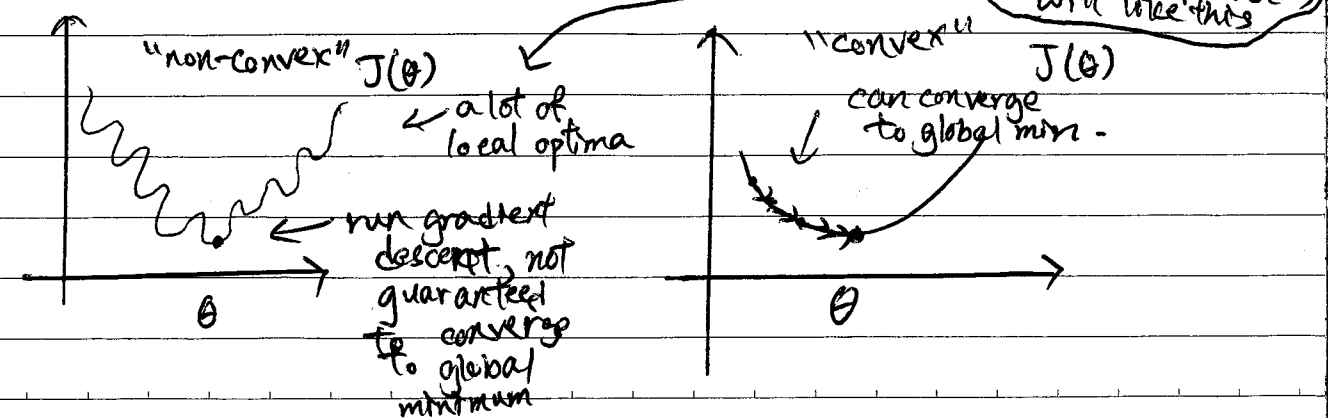 will like this
"non-convex" J(θ)
a lot of
local optima
run gradient
descent, not
guaranteed
to converge
to global
minimum
θ
"convex"
J(θ)
can converge
to global min.
θ